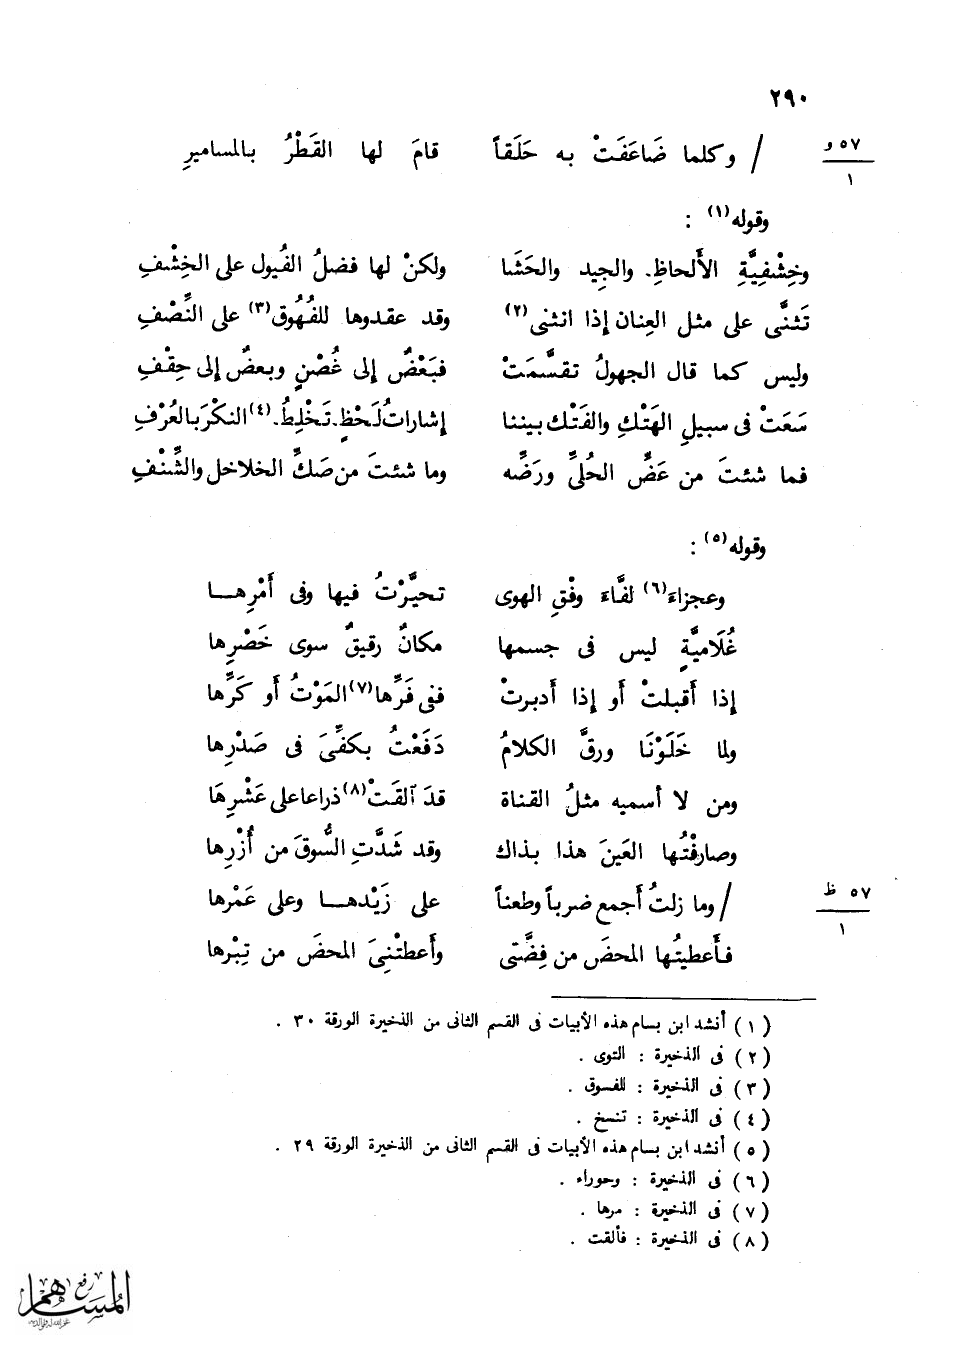 ٢٩٠
٥٧ و
١
/ وكلما ضَاعَفَتْ به حَلَقاً قامَ لها القَطْرُ بالمساميرِ
وقوله(١) :
وخِشْفِيَّةِ الأَلحاظِ. والجِيد والحَشَا ولكنْ لها فضلُ القُيول على الخِشْفِ
تَثنَّى على مثل العِنان إذا انثنى(٢) وقد عقدوها للفُهُوق(٣) على النِّصْفِ
وليس كما قال الجهولُ تقسَّمَتْ فبَعْضٌ إلى غُصْنٍ وبعضٌ إلى حِقْفِ
سَعَتْ فى سبيلِ الهَتْكِ والفَتْك بيننا إشاراتُ لَحْظٍ. تَخْلِطُ. (٤) النكْرَ بالعُرْفِ
فما شئتَ من عَضِّ الحُلىِّ ورَضِّه وما شئتَ من صَكِّ الخلاخل والشِّنْفِ
وقوله(٥) :
وعجزاءَ(٦) لفَّاءَ وفْقِ الهوى تحيَّرْتُ فيها وفى أَمْرِهــا
غُلَاميَّةٍ ليس فى جسمها مكانٌ رقيقٌ سوى خَصْرِها
إذا أَقبلتْ أَو إذا أَدبرتْ ففى فَرِّها(٧) المَوْتُ أَو كَرِّها
ولما خَلَوْنَا ورقَّ الكلامُ دَفَعْتُ بكفِّىَ فى صَدْرِها
ومن لا أسميه مثلُ القناة قدَ ٱلقَتْ(٨) ذراعا على عَشْرِهَا
وصارفْتُها العَينَ هذا بذاك وقد شَدَّتِ السُّوقَ من أُزْرِها
٥٧ ظ
١
/ وما زلتُ أَجمع ضرباً وطعناً على زَيْدهــا وعلى عَمْرها
فأَعطيتُها المحضَ من فِضَّتى وأَعطتْنِىَ المحضَ من تِبْرها
(١) أنشد ابن بسام هذه الأبيات فى القسم الثانى من الذخيرة الورقة ٣٠ .
(٢) فى الذخيرة : التوى .
(٣) فى الذخيرة : للفسوق .
(٤) فى الذخيرة : تنسخ .
(٥) أنشد ابن بسام هذه الأبيات فى القسم الثانى من الذخيرة الورقة ٢٩ .
(٦) فى الذخيرة : وحوراء .
(٧) فى الذخيرة : مرها .
(٨) فى الذخيرة : فألقت .
رفع
المساهم